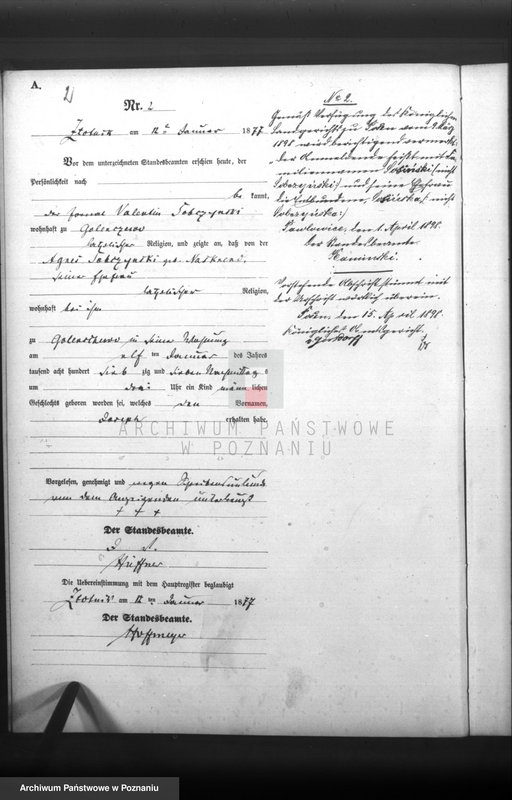 A.
2
Nr. 2
Złotnik am 12ten Januar 1877
Vor dem unterzeichneten Standesbeamten erschien heute, der
Persönlichkeit nach
be kannt,
der Fornal Valentin Sobczynski
wohnhaft zu Golenczewo
katholischer Religion, und zeigte an, daß von der
Agnes Sobczynski geb.
seiner Ehefrau
katholischer Religion,
wohnhaft bei ihm
zu Golenczewo in seiner Wohnung
am elf ten Januar des Jahres
tausend acht hundert sieb zig und sieben Nachmittag s
um drei Uhr ein Kind männ lichen
Geschlechts geboren worden sei, welches den Vornamen,
Joseph erhalten habe.
Vorgelesen, genehmigt und wegen Schreibensunkunde
von dem Anzeigenden unterkreuzt
+ + +
Der Standesbeamte.
Die Uebereinstimmung mit dem Hauptregister beglaubigt
Złotnik am 12 ten Januar 1877
Der Standesbeamte.
Hoffmeyer
No 2.
Gemäß Verfügung des Königlichen
Landgerichts zu Posen vom März
1898 wird berichtigend vermerkt:
der Anmeldende heißt mit Fa-
miliennamen Sobiński (nicht
Sobczynski) und seine Ehefrau
die Entbundene, Sobińska, (nicht
Sobczyńska.)
Pawlowice, den 1 April 1898.
Der Standesbeamte.
Kaminski.
Vorstehende Abschrift stimmt mit
der Urschrift wörtlich überein.
Posen, den 15. April 1898.
Königliches Amtsgericht.
ARCHIWUM PAŃSTWOWE
W POZNANIU
Archiwum Państwowe w Poznaniu